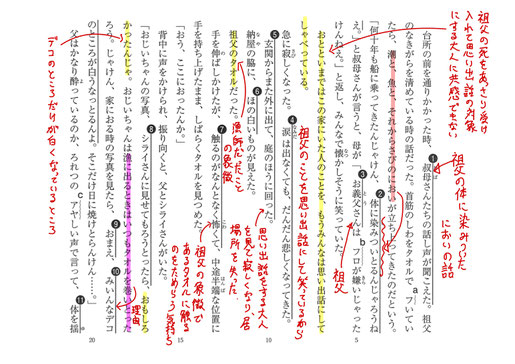 祖父の死をあっさり受け
入れて思い出話の対象
にする大人に共感できない
台所の前を通りかかった時、❶叔母さんたちの話し声が聞こえた。祖父
のなきがらを清めている時の話だった。首筋のしわをタオルでaフいてい
たら、潮と、魚と、それからさびのにおいが立ちのぼってきたのだという。
「何十年も船に乗ってきたんじゃけん、❷体に染みついとるんじゃろうね
え。」と叔母さんが言うと、母が「❸お義父さんは、bフロが嫌いじゃった
けんねえ。」と返し、みんなで懐かしそうに笑っていた。
おとといまではこの家にいた人のことを、もうみんなは思い出話にして
しゃべっている。
急に寂しくなった。❹涙は出なくても、だんだん悲しくなってきた。
❺玄関からまた外に出て、庭のほうに回った。
納屋の脇に、❻ほの白いものが見えた。
祖父のタオルだった。
手を伸ばしかけたが、❼触るのがなんとなく怖くて、中途半端な位置に
手を持ち上げたまま、しばらくタオルを見つめた。
「おう、ここにおったんか。」
背中に声をかけられ、振り向くと、父とシライさんがいた。
「おじいちゃんの写真、❽シライさんに見せてもろうとったら、おもしろ
かったんじゃ。おじいちゃんは漁に出るときはいつもタオルを巻いとった
ろ。じゃけん、家におる時の写真を見たら、❾おまえ、❿みいんなデコ
のところが白うなっとるんよ。そこだけ日に焼けとらんけん……。」
父はかなり酔っているのか、ろれつのcアヤしい声で言って、⓫体を揺
祖父の体に染みついた
においの話
祖父
祖父のことを思い出話にして笑っているから
思い出話をする大人
を見て寂しくなり居
場所を失った
漁師だったこと
の象徴
祖父の象徴で
あるタオルに触る
のをためらう気持ち
理由
デコのところだけが白くなっているところ
5
10
15
20